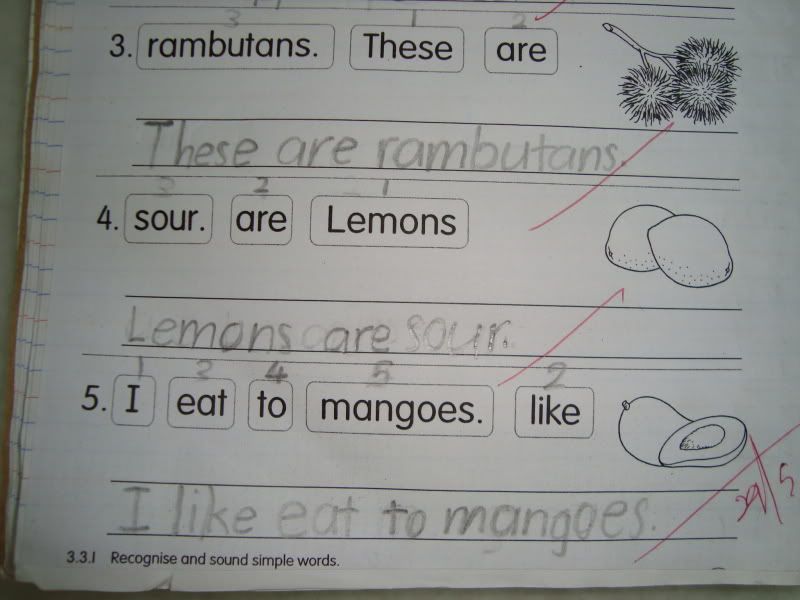 3 1 2
3. rambutans. These are
These are rambutans.
3 2 1
4. sour. are Lemons
Lemons are sour.
1 3 4 5 2
5. I eat to mangoes. like
I like eat to mangoes.
3.3.1 Recognise and sound simple words.